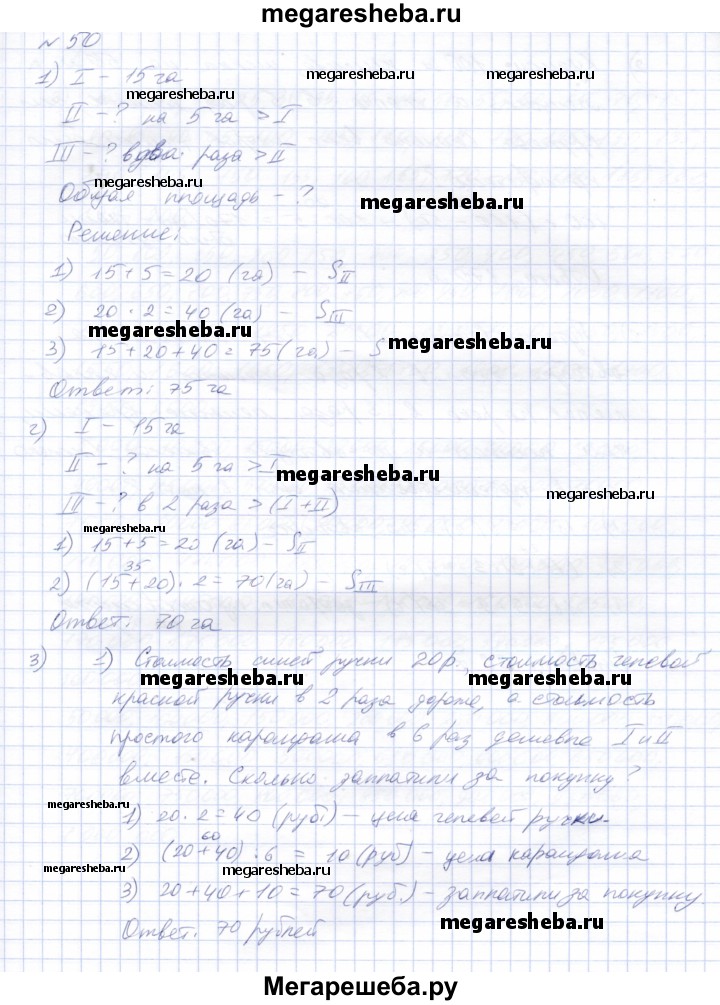 megaresheba.ru
№ 50
1) I – 15 га
megaresheba.ru
megaresheba.ru
megaresheba.ru
II – ? на 5 га > I
III – ? в два раза > II
megaresheba.ru
Общая площадь – ?
megaresheba.ru
Решение:
1) 15 + 5 = 20 (га) – S II
2) 20 · 2 = 40 (га) – S III
megaresheba.ru
3) 15 + 20 + 40 = 75 (га) – S
megaresheba.ru
Ответ: 75 га
2) I – 15 га
II – ? на 5 га > I
megaresheba.ru
megaresheba.ru
III – ? в 2 раза > (I + II)
megaresheba.ru
1) 15 + 5 = 20 (га) – S II
35
2) (15 + 20) · 2 = 70 (га) – S III
Ответ. 70 га
3) 1) Стоимость синей ручки 20р., стоимость гелевой
megaresheba.ru
megaresheba.ru
красной ручки в 2 раза дороже, а стоимость
простого карандаша в 6 раз дешевле I и II
вместе. Сколько заплатили за покупку?
megaresheba.ru
1) 20 · 2 = 40 (руб) – цена гелевой ручки.
60
2) (20 + 40) : 6 = 10 (руб) – цена карандаша
megaresheba.ru
3) 20 + 40 + 10 = 70 (руб.) – заплатили за покупку.
megaresheba.ru
Ответ. 70 рублей
Мегарешеба.ру